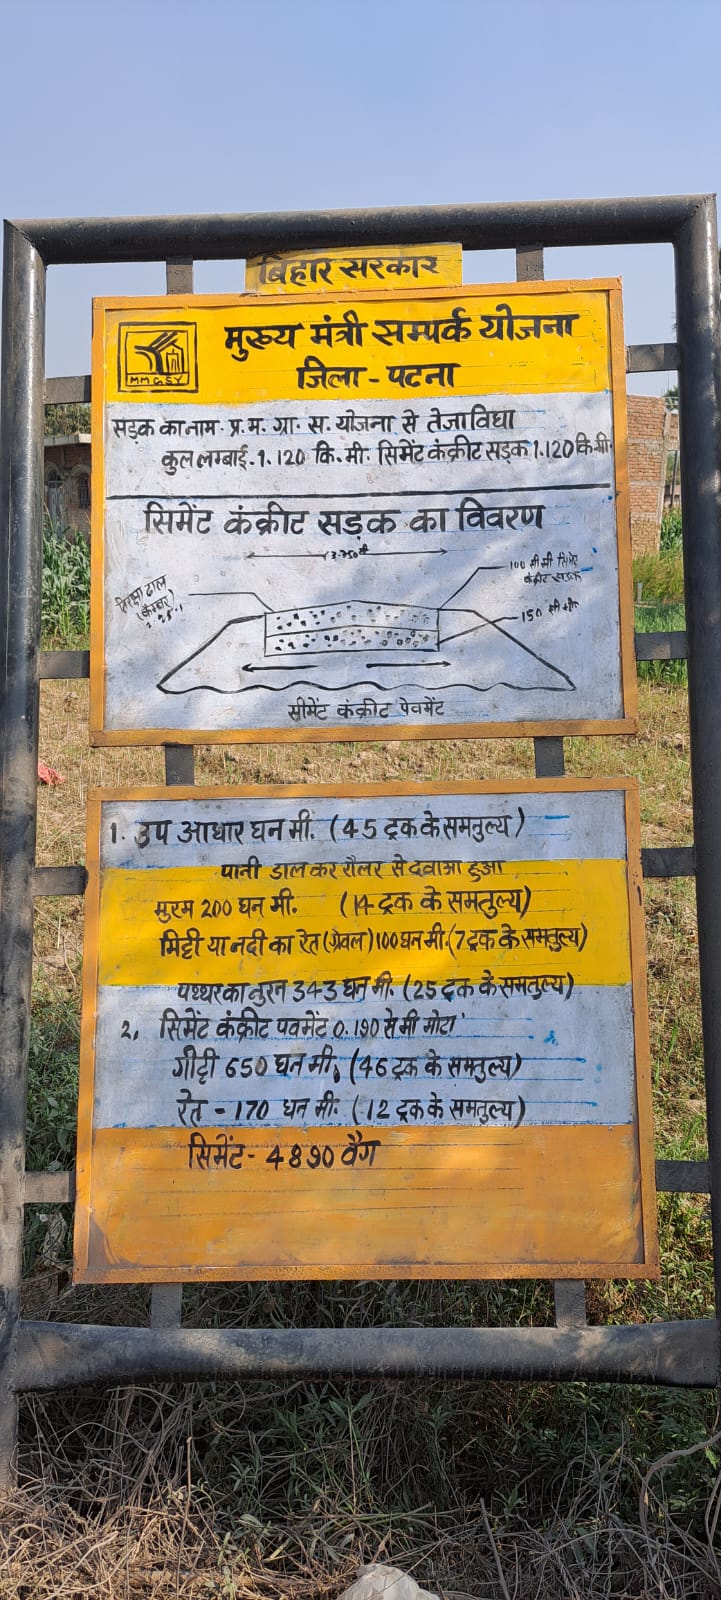 बिहार सरकार
मुख्य मंत्री सम्पर्क योजना
MMGSY
जिला - पटना
सड़क का नाम. प्र. म. ग्रा. स. योजना से तेजा विघा
कुल लम्बाई. 1.120 कि. मी. सिमेंट कंक्रीट सड़क 1.120 कि.मी.
सिमेंट कंक्रीट सड़क का विवरण
3.750 मी
100 मी मी सिमेंट
कंक्रीट सड़क
ढाल
(केम्बर)
150 मी मी
सीमेंट कंक्रीट पेवमेंट
1. उप आधार घन मी. (45 ट्रक के समतुल्य)
पानी डाल कर रौलर से दवाआ हुआ
मुरम 200 घन मी. (14 ट्रक के समतुल्य)
मिट्टी या नदी का रेत (ग्रेवल) 100 घन मी. (7 ट्रक के समतुल्य)
पथ्थर का चुरन 343 घन मी. (25 ट्रक के समतुल्य)
2. सिमेंट कंक्रीट पवमेंट 0.190 से मी मोटा
गीट्टी 650 घन मी. (46 ट्रक के समतुल्य)
रेत - 170 घन मी. (12 ट्रक के समतुल्य)
सिमेंट - 4890 वैग